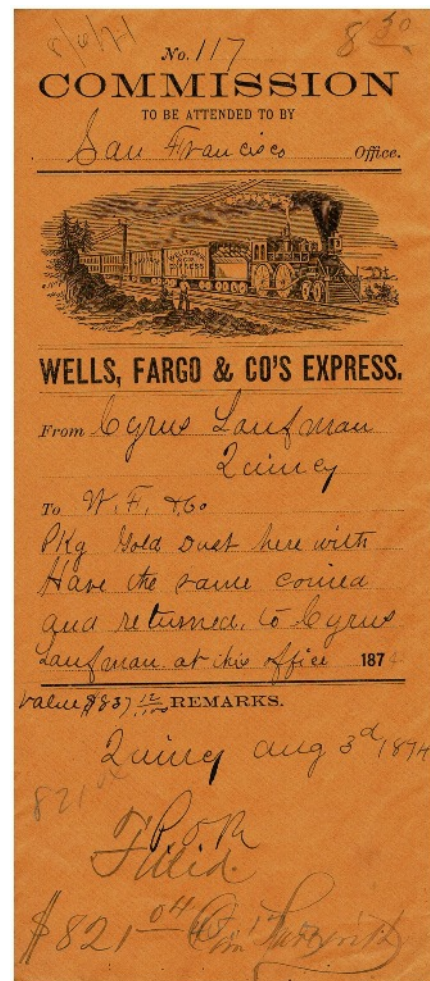 No. 117
8 50
COMMISSION
TO BE ATTENDED TO BY
San Francisco Office.
WELLS, FARGO & CO'S EXPRESS.
From Cyrus Laufman
Quincy
To W. F. & Co
Pkg Gold Dust here with
Have the same coined
and returned, to Cyrus
Laufman at this office 187
value $837 12/100 REMARKS.
Quincy Aug 3d 1874
821 04
Filled.
$821 04